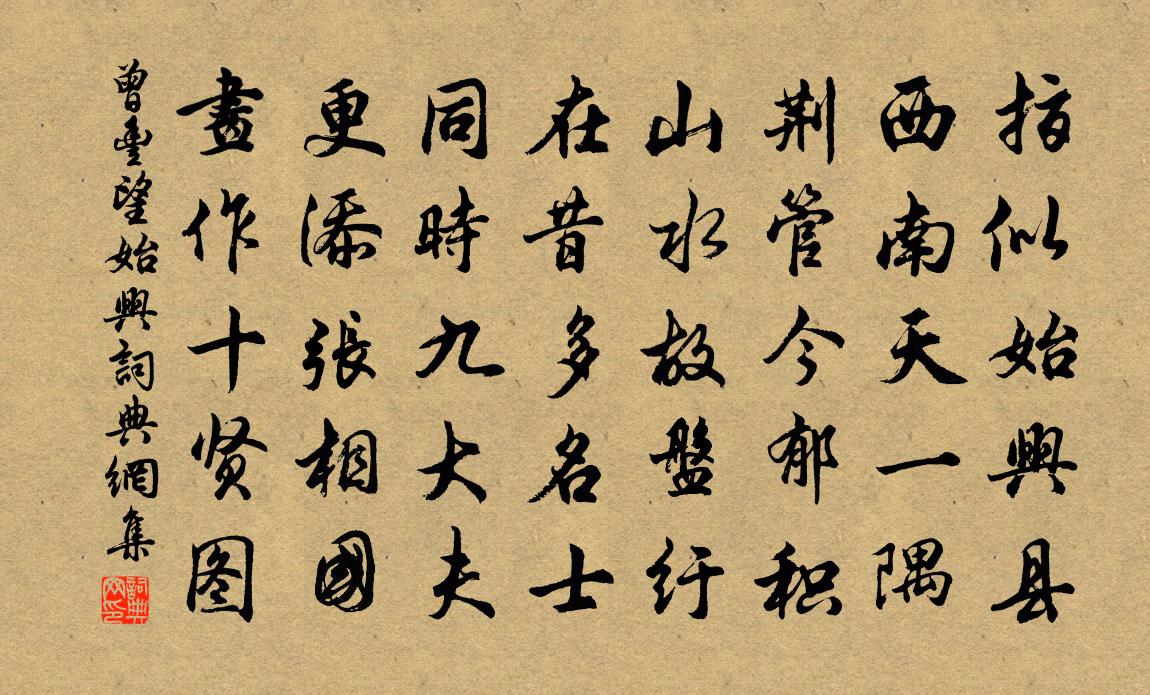 指似始興县
西南天一隅
荆管今郁积
山水故盤纡
在昔多名士
同時九大夫
更添張相國
畫作十贤图
曾豐望始興詞典網集
詞典
网印